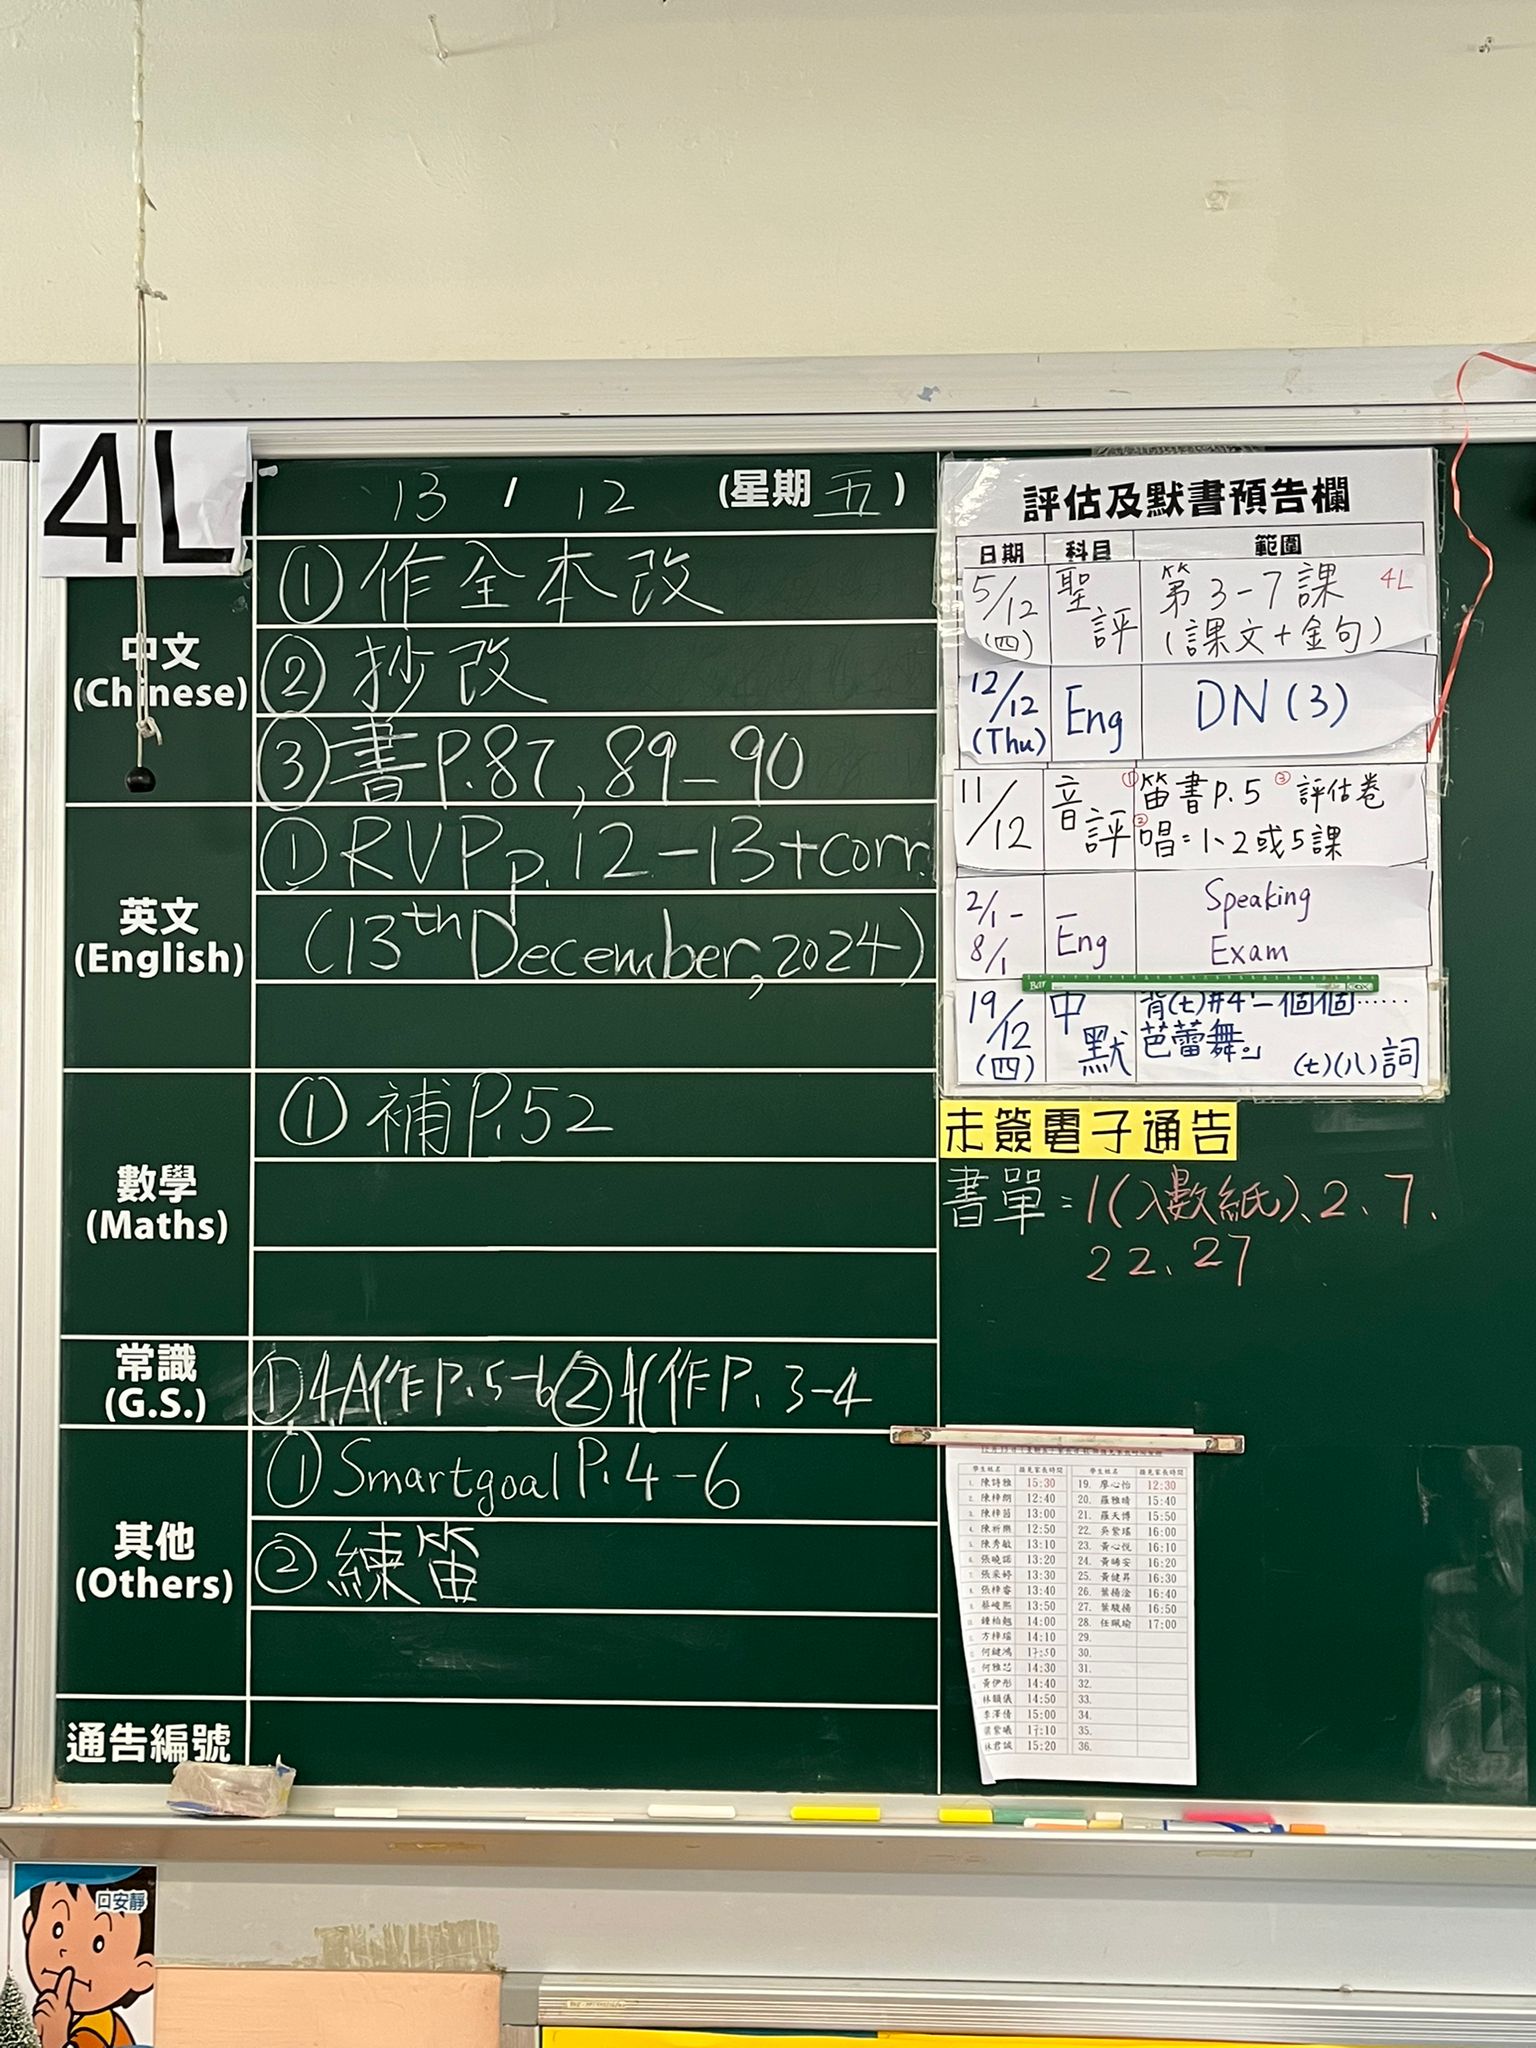 4L
13 / 12 (星期五)
中文
(Chinese)
①作全本改
②抄改
③書P.87, 89-90
英文
(English)
①RVP p.12-13+corr.
(13th December, 2024)
數學
(Maths)
①補P.52
常識
(G.S.)
①4A作P.5-6②作P.3-4
其他
(Others)
①Smartgoal P.4-6
②練笛
通告編號
評估及默書預告欄
日期 科目 範圍
5/12 (四) 聖評 第3-7課 4L
(課文+金句)
12/12 (Thu) Eng DN (3)
11/12 音評 ①笛書P.5 ③評估卷
②唱=1、2或5課
2/1-8/1 Eng Speaking
Exam
19/12 (四) 中默 背(七)#4 一個個……
芭蕾舞。」
(七)(八)詞
未簽電子通告
書單=1(入數紙)、2、7、
22、27
學生姓名 接見家長時間 學生姓名 接見家長時間
1. 陳詩雅 15:30 19. 廖心怡 12:30
2. 陳梓朗 12:40 20. 羅雅晴 15:40
3. 陳梓茵 13:00 21. 羅天博 15:50
4. 陳祈樂 12:50 22. 吳紫瑤 16:00
5. 陳秀敏 13:10 23. 黃心悅 16:10
6. 張曉諾 13:20 24. 黃晞安 16:20
7. 張采婷 13:30 25. 黃健昇 16:30
8. 張梓睿 13:40 26. 葉揚淦 16:40
蔡峻熙 13:50 27. 葉駿揚 16:50
鍾柏翹 14:00 28. 任珮瑜 17:00
方梓瑤 14:10 29.
何鍵鴻 17:50 30.
何雅芯 14:30 31.
黃伊彤 14:40 32.
林韻儀 14:50 33.
李澤倩 15:00 34.
梁紫曦 17:10 35.
林君誠 15:20 36.
口安靜